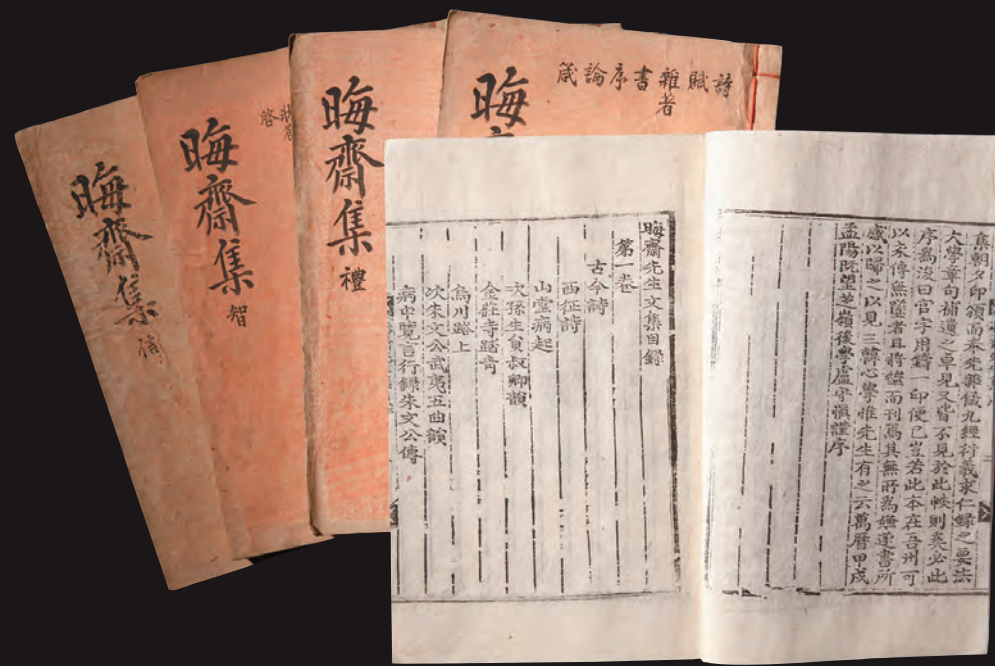 詩 賦 雜著 書 序 論 箴
晦
晦齋集 禮
晦齋集 智
晦齋集
集朝夕印頒而奉先雜儀九經衍義求仁錄之要法
大學章句補遺之卓見又皆不見於此帙則奚必此
序爲浚曰官字用鑄一印便已豈若此本在吾州可
以永傳無墜者且將繼而刊焉其無所爲嫌遂書所
感以歸之以見三韓心學惟先生有之云萬曆甲戌
孟陽旣望芝嶺後學盧守愼謹序
晦齋先生文集目錄
第一卷
古今詩
西征詩
山堂病起
次孫生員叔卿韻
金莊寺踏靑
烏川路上
次朱文公武夷五曲韻
病中覽言行錄朱文公傳